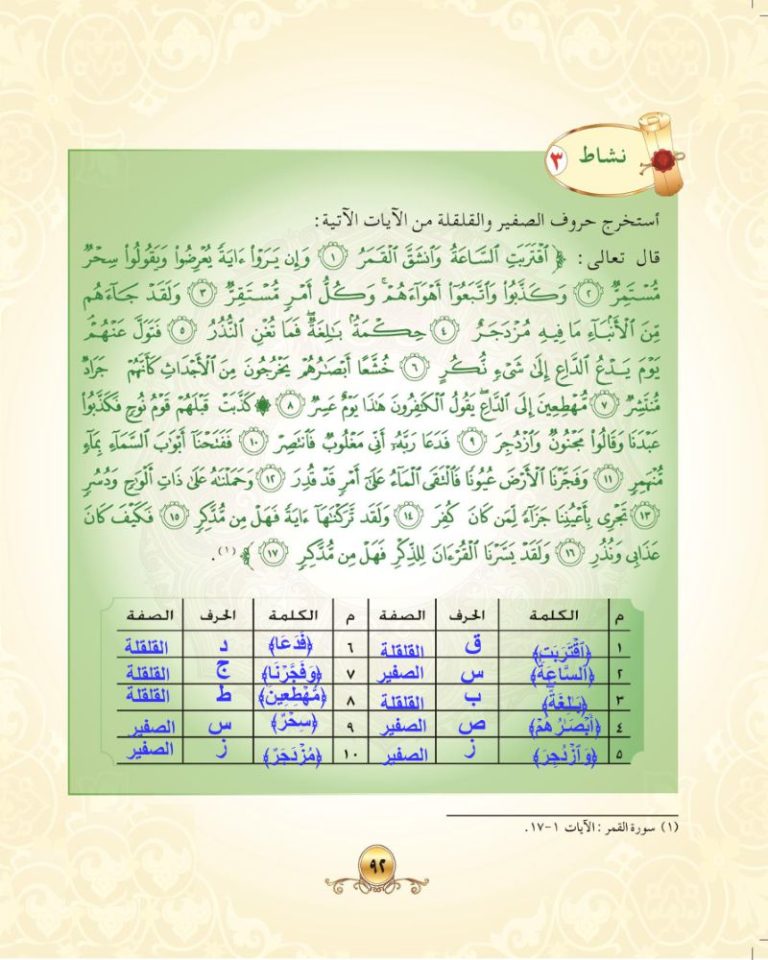 نشاط ٣
أستخرج حروف الصفير والقلقلة من الآيات الآتية:
قال تعالى: ﴿ ٱقْتَرَبَتِ ٱلسَّاعَةُ وَٱنشَقَّ ٱلْقَمَرُ ١ وَإِن يَرَوْا۟ ءَايَةً يُعْرِضُوا۟ وَيَقُولُوا۟ سِحْرٌ
مُّسْتَمِرٌّ ٢ وَكَذَّبُوا۟ وَٱتَّبَعُوٓا۟ أَهْوَآءَهُمْ ۚ وَكُلُّ أَمْرٍ مُّسْتَقِرٌّ ٣ وَلَقَدْ جَآءَهُم
مِّنَ ٱلْأَنۢبَآءِ مَا فِيهِ مُزْدَجَرٌ ٤ حِكْمَةٌۢ بَٰلِغَةٌ ۖ فَمَا تُغْنِ ٱلنُّذُرُ ٥ فَتَوَلَّ عَنْهُمْ
يَوْمَ يَدْعُ ٱلدَّاعِ إِلَىٰ شَىْءٍ نُّكُرٍ ٦ خُشَّعًا أَبْصَٰرُهُمْ يَخْرُجُونَ مِنَ ٱلْأَجْدَاثِ كَأَنَّهُمْ جَرَادٌ
مُّنتَشِرٌ ٧ مُّهْطِعِينَ إِلَى ٱلدَّاعِ ۖ يَقُولُ ٱلْكَٰفِرُونَ هَٰذَا يَوْمٌ عَسِرٌ ٨ ۞ كَذَّبَتْ قَبْلَهُمْ قَوْمُ نُوحٍ فَكَذَّبُوا۟
عَبْدَنَا وَقَالُوا۟ مَجْنُونٌ وَٱزْدُجِرَ ٩ فَدَعَا رَبَّهُۥٓ أَنِّى مَغْلُوبٌ فَٱنتَصِرْ ١٠ فَفَتَحْنَآ أَبْوَٰبَ ٱلسَّمَآءِ بِمَآءٍ
مُّنْهَمِرٍ ١١ وَفَجَّرْنَا ٱلْأَرْضَ عُيُونًا فَٱلْتَقَى ٱلْمَآءُ عَلَىٰٓ أَمْرٍ قَدْ قُدِرَ ١٢ وَحَمَلْنَٰهُ عَلَىٰ ذَاتِ أَلْوَٰحٍ وَدُسُرٍ
١٣ تَجْرِى بِأَعْيُنِنَا جَزَآءً لِّمَن كَانَ كُفِرَ ١٤ وَلَقَد تَّرَكْنَٰهَآ ءَايَةً فَهَلْ مِن مُّدَّكِرٍ ١٥ فَكَيْفَ كَانَ
عَذَابِى وَنُذُرِ ١٦ وَلَقَدْ يَسَّرْنَا ٱلْقُرْءَانَ لِلذِّكْرِ فَهَلْ مِن مُّدَّكِرٍ ١٧ ﴾ (١).
م الكلمة الحرف الصفة م الكلمة الحرف الصفة
١ ﴿ٱقْتَرَبَتِ﴾ ق القلقلة ٦ ﴿فَدَعَا﴾ د القلقلة
٢ ﴿ٱلسَّاعَةُ﴾ س الصفير ٧ ﴿وَفَجَّرْنَا﴾ ج القلقلة
٣ ﴿بَٰلِغَةٌ﴾ ب القلقلة ٨ ﴿مُّهْطِعِينَ﴾ ط القلقلة
٤ ﴿أَبْصَٰرُهُمْ﴾ ص الصفير ٩ ﴿سِحْرٌ﴾ س الصفير
٥ ﴿وَٱزْدُجِرَ﴾ ز الصفير ١٠ ﴿مُزْدَجَرٌ﴾ ز الصفير
(١) سورة القمر: الآيات ١-١٧.
٩٢